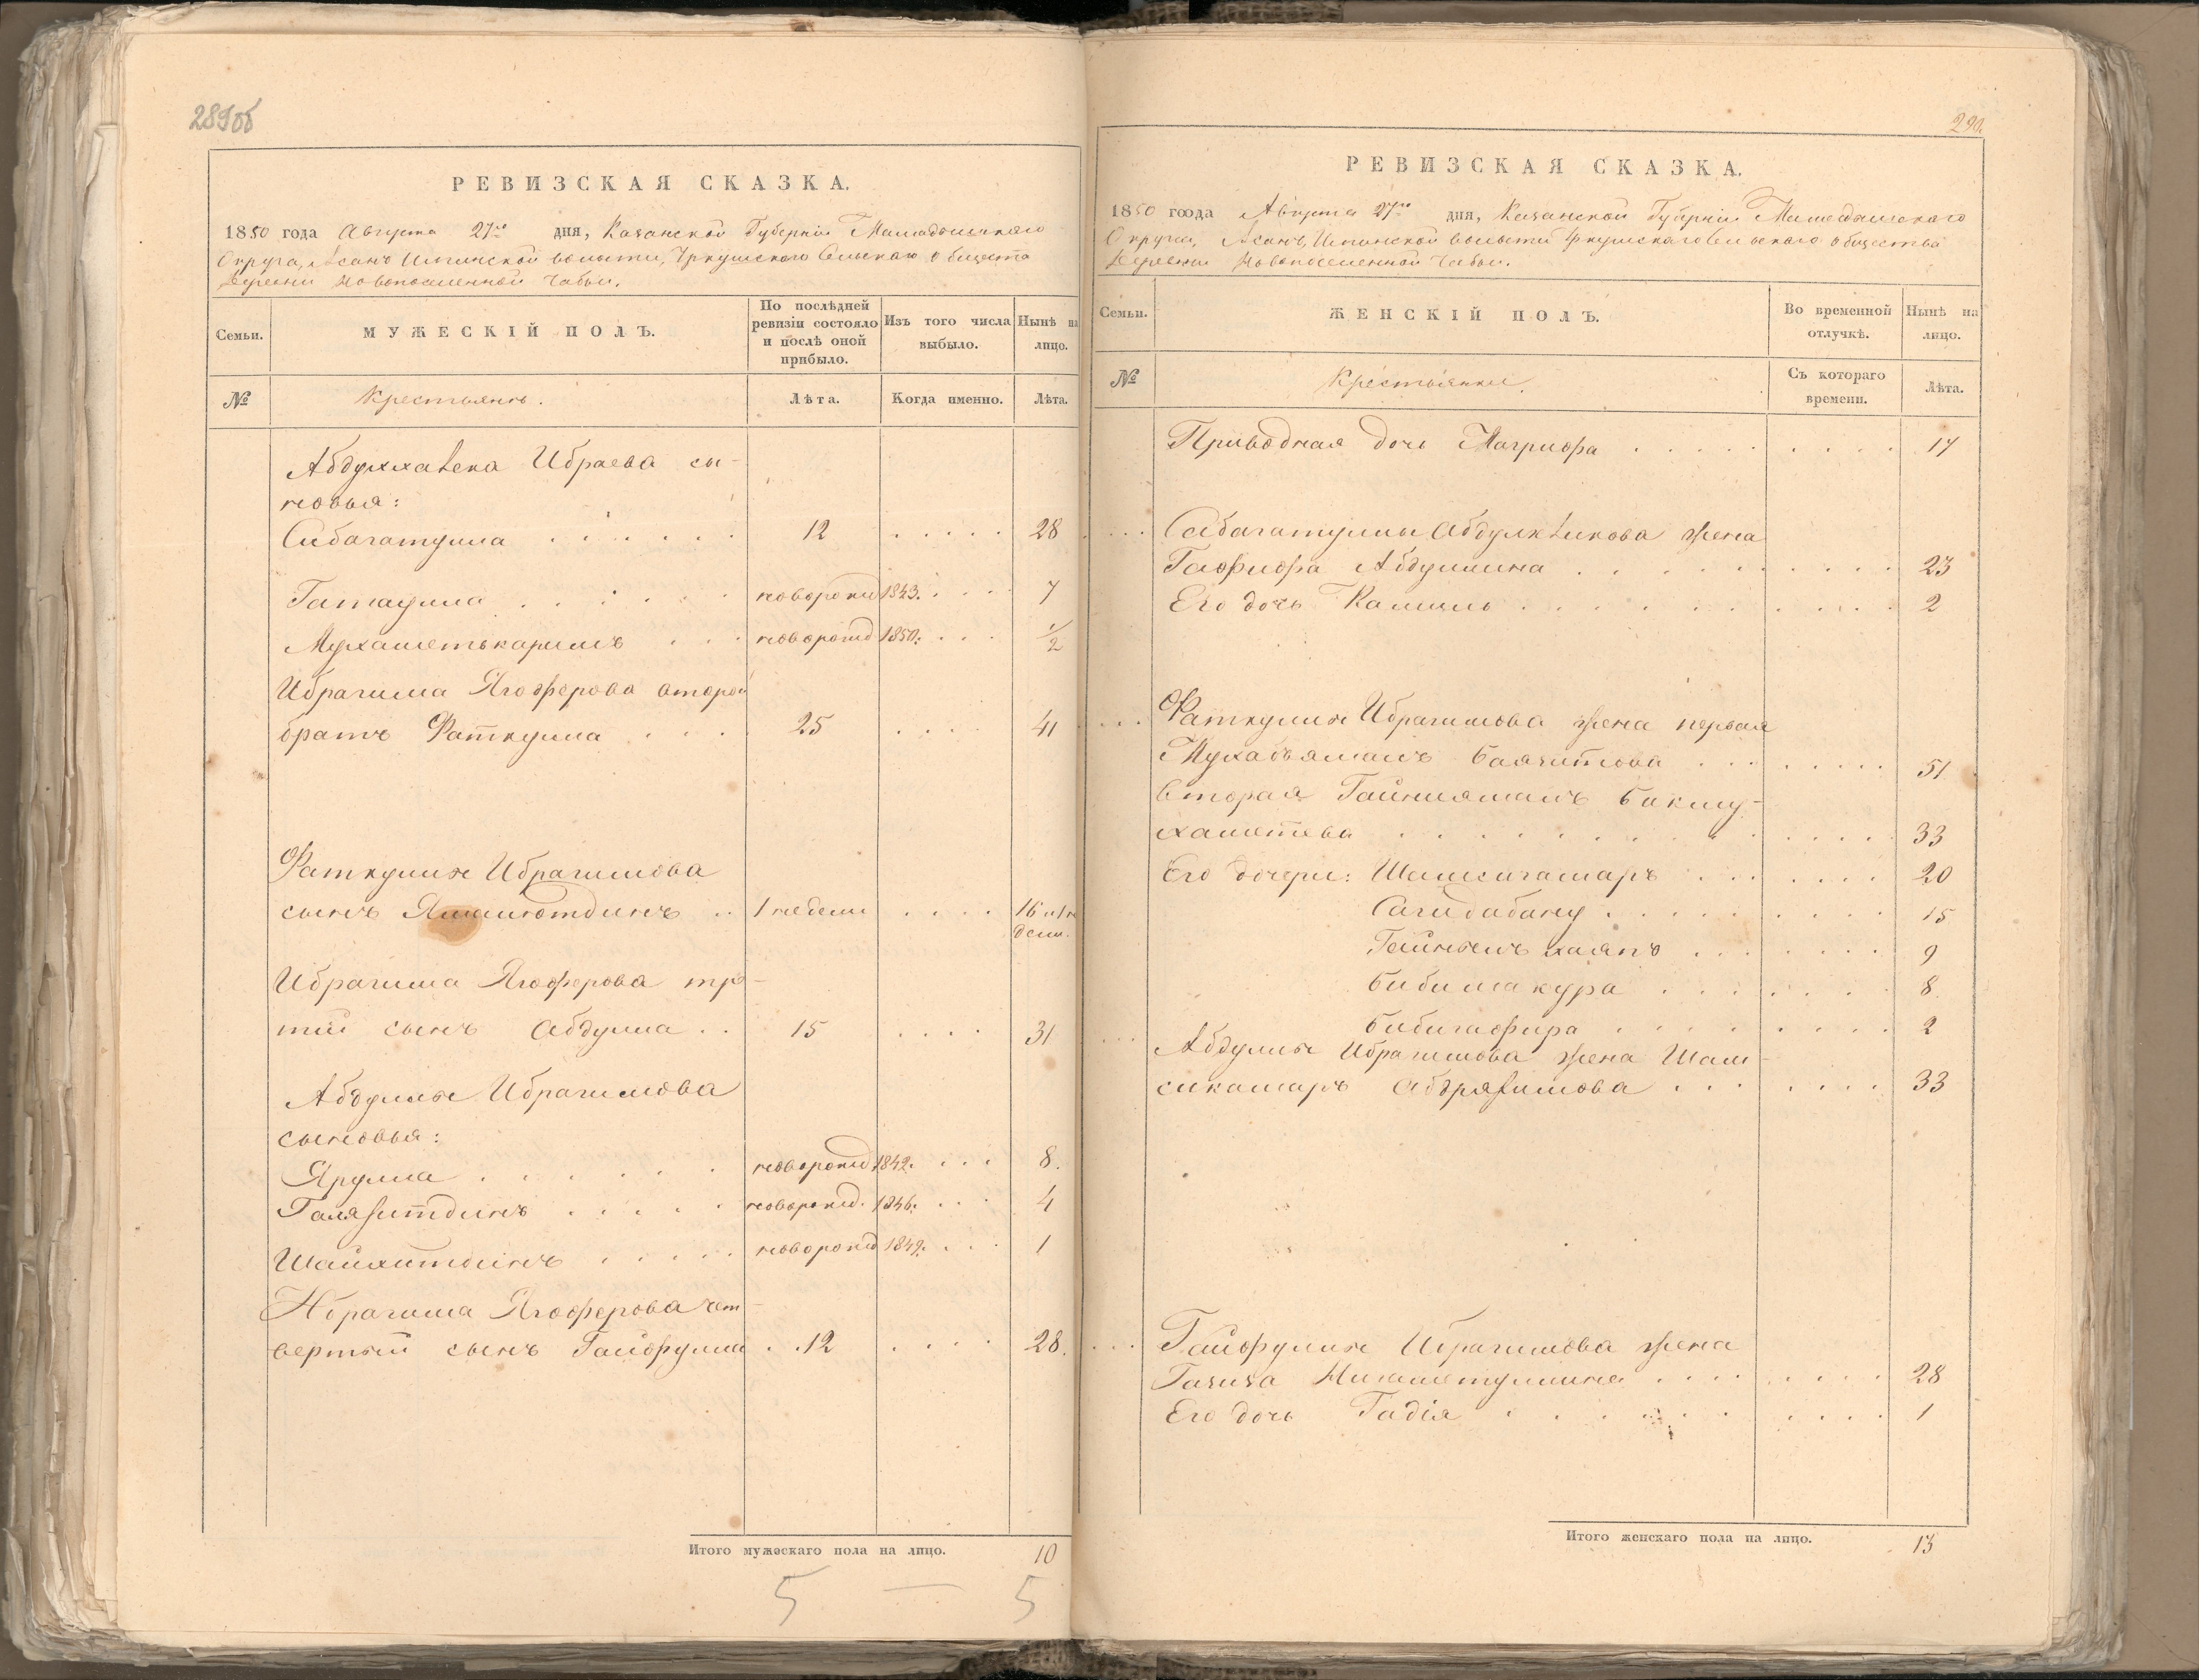 289об
РЕВИЗСКАЯ СКАЗКА.
1850 года Августа 27го дня, Казанской Губернiи Мамадышскаго
Округа, Асанъ Илгинской волости, Сельскаго общества
Деревни Новопоселенной Чабьи.
Семьи.
МУЖЕСКIЙ ПОЛЪ.
По послѣдней ревизiи состояло и послѣ оной прибыло.
Изъ того числа выбыло.
Нынѣ на лицо.
№
Крестьянъ.
Лѣта.
Когда именно.
Лѣта.
Ибраева сы-
новья:
Сибагатулла . . . . . . 12 . . . . . 28
Гатаулла . . . . . . новорожд 1843. . . . 7
Мухаметькаримъ . . . новорожд 1850. . . . 1/2
Ибрагима Ягоферова второй
братъ Фаткулла . . . . 25 . . . . 41
Фаткуллы Ибрагимова
сынъ . . 1 недели . . . . 16 и 1 не
дели.
Ибрагима Ягоферова тре-
тiй сынъ Абдулла . . 15 . . . . 31
Абдуллы Ибрагимова
сыновья:
Ярулла . . . . . . новорожд 1842. . . . 8.
Галязитдинъ . . . . . новорожд. 1846. . . . 4
Шайхитдинъ . . . . . новорожд 1849. . . . 1
Ибрагима Ягоферова чет-
вертый сынъ Гайфулла . . 12 . . . . 28.
Итого мужескаго пола на лицо. 10
5 — 5
290.
РЕВИЗСКАЯ СКАЗКА.
1850 года Августа 27го дня, Казанской Губернiи Мамадышскаго
Округа, Асанъ Илгинской волости Сельскаго общества
Деревни Новопоселенной Чабьи.
Семьи.
ЖЕНСКIЙ ПОЛЪ.
Во временной отлучкѣ.
Нынѣ на лицо.
№
Крестьянки.
Съ котораго времени.
Лѣта.
Приводная дочь Магрифа . . . . . . . . . 17
. . . Сибагатуллы жена
Гафифа Абдуллина . . . . . . . . . . 23
Его дочь Камиль . . . . . . . . . . . 2
. . . Фаткуллы Ибрагимова жена первая
Баязитова . . . . . . . . 51
вторая Гайниямалъ Бикму-
хаметева . . . . . . . . . . . . . 33
Его дочери: Шамсигамаръ . . . . . . . 20
Сагидабану . . . . . . . . . 15
. . . . . . . 9
Бибишакура . . . . . . . 8
Бибигафира . . . . . . . . 2
. . . Абдуллы Ибрагимова жена Шам-
сикамаръ . . . . . . . 33
. . . Гайфуллы Ибрагимова жена
Газиза Нигаметуллина . . . . . . . . 28
Его дочь Гадiя . . . . . . . . . . 1
Итого женскаго пола на лицо. 13